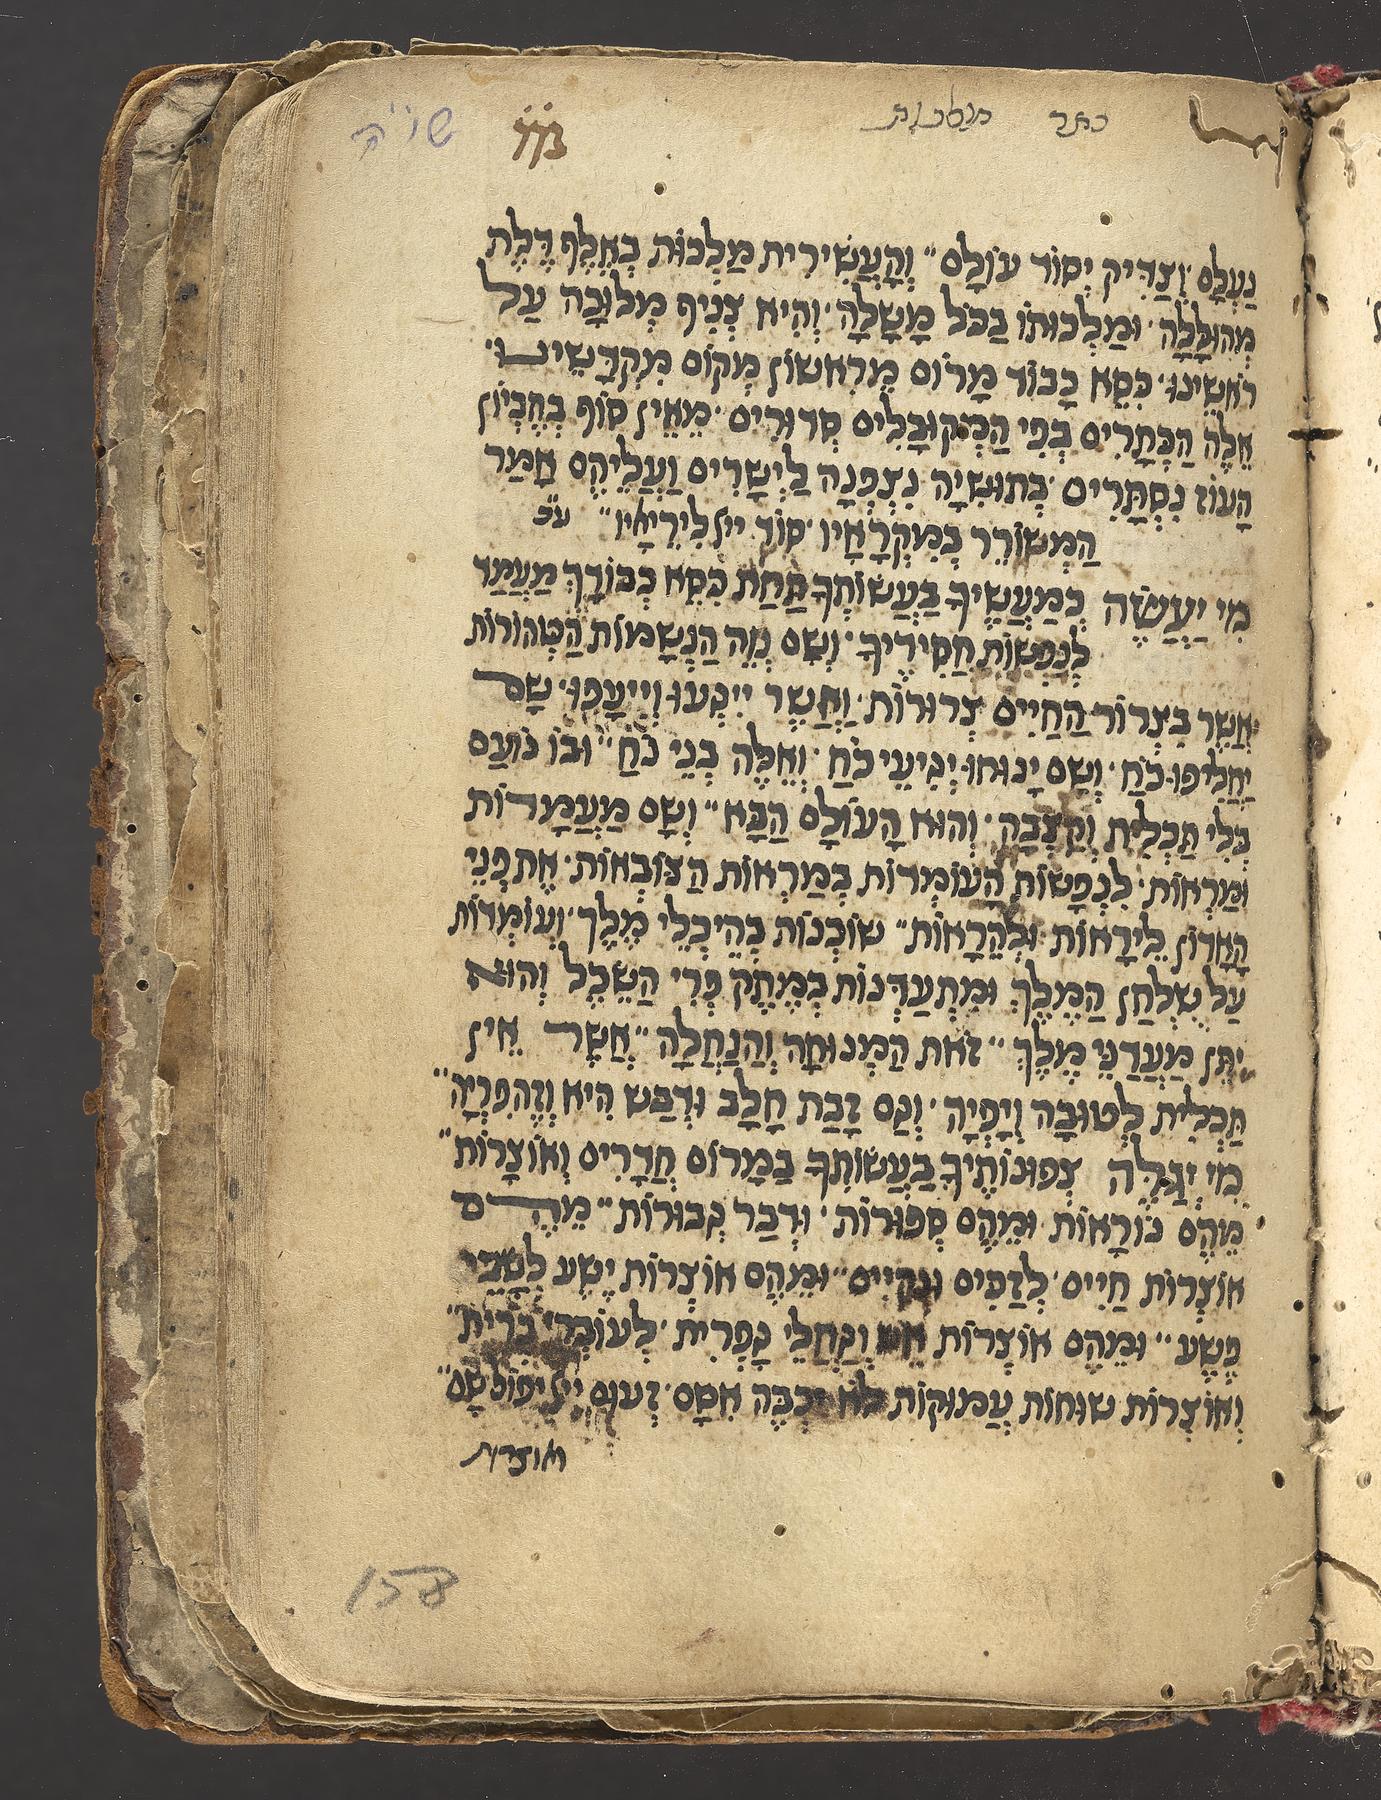 כתר מלכות
שי״ה
נַעְלָם וְצַדִּיק יְסוֹד עוֹלָם״ וְהָעֲשִׂירִית מַלְכוּת בְּאָלֶף דָּלֶת
מְהוּלָּלָה׳ וּמַלְכוּתוֹ בַּכֹּל מָשָׁלָה׳ וְהִיא צְנִיף מְלוּכָה עַל
רֹאשֵׁינוּ׳ כִּסֵּא כָבוֹד מָרוֹם מֵרִאשׁוֹן מְקוֹם מִקְדָּשֵׁינוּ׳
אֵלֶּה הַכְּתָרִים בְּפִי הַמְּקוּבָּלִים סְדוּרִים׳ מֵאֵין סוֹף בְּחֶבְיוֹן
הָעוֹז נִסְתָּרִים׳ בְּתוּשִׁיָּה נִצְפְּנָה לַיְשָׁרִים וַעֲלֵיהֶם אָמַר
הַמְשׁוֹרֵר בְּמִקְרָאָיו׳ סוֹד ייל לִירֵיאָיו״
מִי יַעֲשֶׂה כְּמַעֲשֶׂיךָ בַּעֲשׂוֹתְךָ תַּחַת כִּסֵּא כְבוֹדָךְ מַעֲמַד
לְנַפְשׁוֹת חֲסִידֶיךָ׳ וְשָׁם נְוֵה הַנְּשָׁמוֹת הַטְּהוֹרוֹת
אֲשֶׁר בִּצְרוֹר הַחַיִּים צְרוּרוֹת׳ וַאֲשֶׁר יִיגְעוּ וְיִיעָפוּ׳ שָׁם
יַחֲלִיפוּ כֹחַ׳ וְשָׁם יָנוּחוּ יְגִיעֵי כֹחַ׳ וְאֵלֶּה בְּנֵי נֹחַ״ וּבוֹ נוֹעַם
בְּלִי תַכְלִית וְקִצְבָה׳ וְהוּא הָעוֹלָם הַבָּא״ וְשָׁם מַעֲמָדוֹת
וּמַרְאוֹת׳ לִנְפָשׁוֹת הָעוֹמְדוֹת בְּמַרְאוֹת הַצּוֹבְאוֹת׳ אֶת פְּנֵי
הָאָדוֹן לֵירָאוֹת וּלְהֵרָאוֹת״ שׁוֹכְנוֹת בְּהֵיכְלֵי מֶלֶךְ׳ וְעוֹמְדוֹת
עַל שֻׁלְחַן הַמֶּלֶךְ וּמִתְעַדְּנוֹת בְּמֶתֶק פְּרִי הַשֵּׂכֶל וְהוּא
יִתֵּן מַעֲדַנֵּי מֶלֶךְ״ זֹאת הַמְּנוּחָה וְהַנַּחֲלָה״ אֲשֶׁר אֵין
תַּכְלִית לְטוּבָהּ וְיָפְיָהּ׳ וְגַם זָבַת חָלָב וּדְבַשׁ הִיא וְזֶה פִּרְיָהּ״
מִי יְגַלֶּה צְפוּנוֹתֶיךָ בַּעֲשׂוֹתְךָ בַּמָּרוֹם חֲדָרִים וְאוֹצָרוֹת״
מֵהֶם נוֹרָאוֹת וּמֵהֶם סְפוּרוֹת׳ וּדְבַר גְּבוּרוֹת״ מֵהֶם
אוֹצְרוֹת חַיִּים׳ לְזַכִּים וּנְקִיִּים״ וּמֵהֶם אוֹצְרוֹת יֶשַׁע לְשָׁבֵי
פֶשַׁע״ וּמֵהֶם אוֹצְרוֹת אֵשׁ וְנַחֲלֵי גָפְרִית׳ לְעוֹבְרֵי בְרִית״
וְאוֹצְרוֹת שׁוּחוֹת עֲמוּקוֹת לֹא יִכְבֶּה אִשָּׁם׳ זְעוּם ייל יִפּוֹל שָׁם״
ואוצרות
158